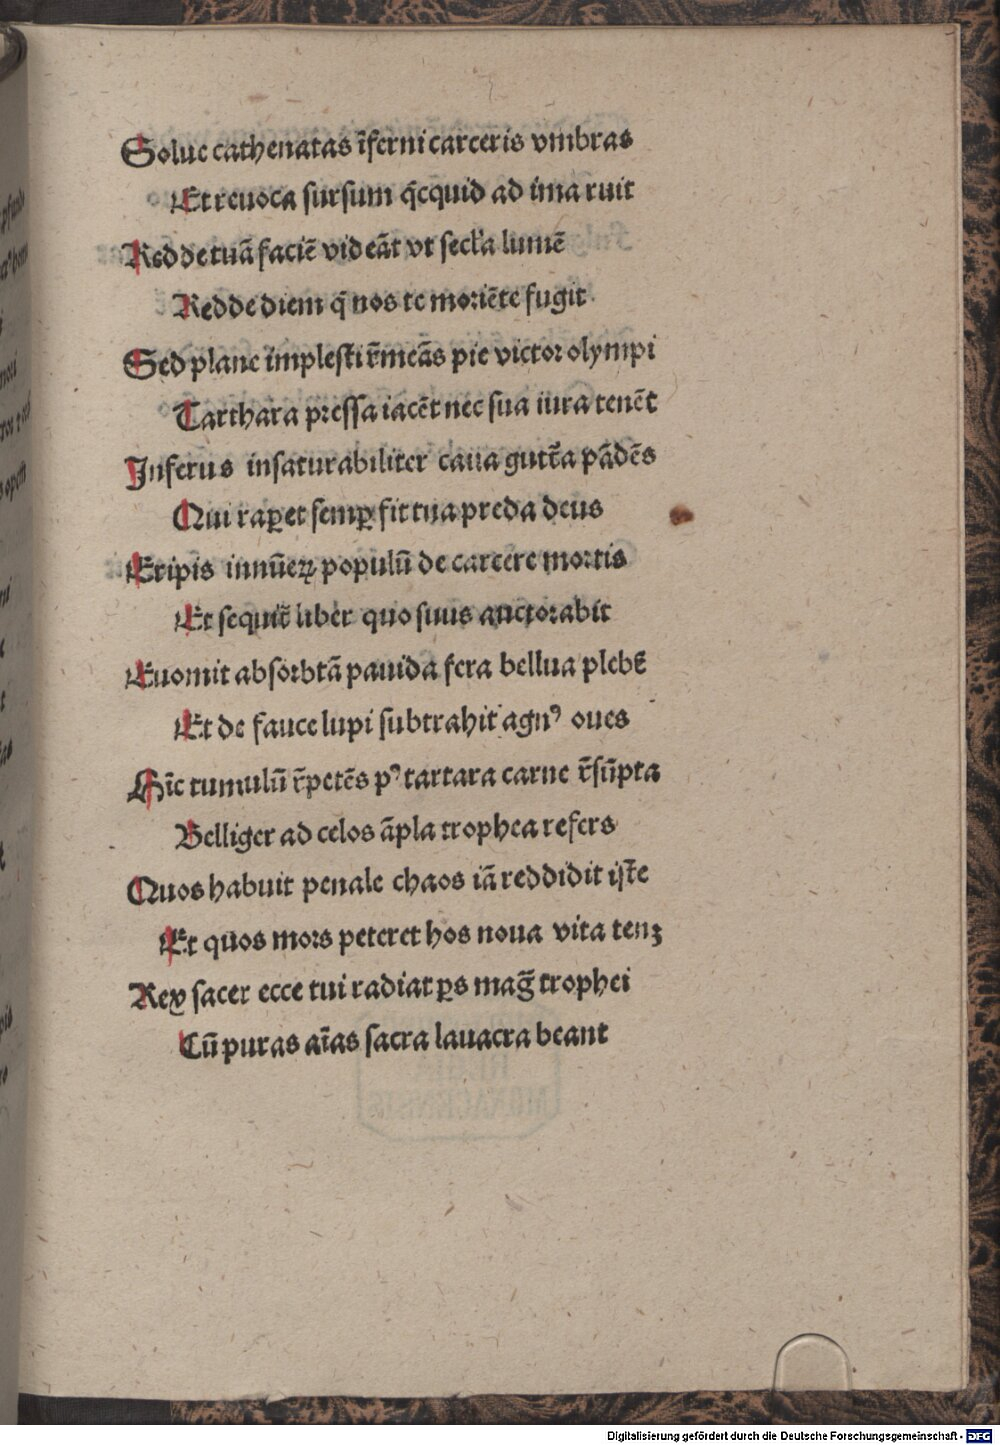 Solue cathenatas ĩferni carceris vmbras
Et reuoca sursum q̃cquid ad ima ruit
Redde tuã faciẽ videãt vt secl'a lumẽ
Redde diem q̃ nos te moriẽte fugit
Sed plane implesti r̃meãs pie victor olympi
Tarthara pressa iacẽt nec sua iura tenẽt
Inferus insaturabiliter caua gutt̃a pãdẽs
Qui raꝑet semꝑ fit tua preda deus
Eripis innũeꝝ populũ de carcere mortis
Et sequit̃ liber quo suus auctor abit
Euomit absorbtã pauida fera bellua plebẽ
Et de fauce lupi subtrahit agnꝰ oues
Hĩc tumulũ r̃petẽs pꝰ tartara carne r̃sũpta
Belliger ad celos ãpla trophea refers
Quos habuit penale chaos iã reddidit iste
Et quos mors peteret hos noua vita tenꝫ
Rex sacer ecce tui radiat ꝑs mag̃ trophei
Cũ puras aĩas sacra lauacra beant
Digitalisierung gefördert durch die Deutsche Forschungsgemeinschaft - DFG